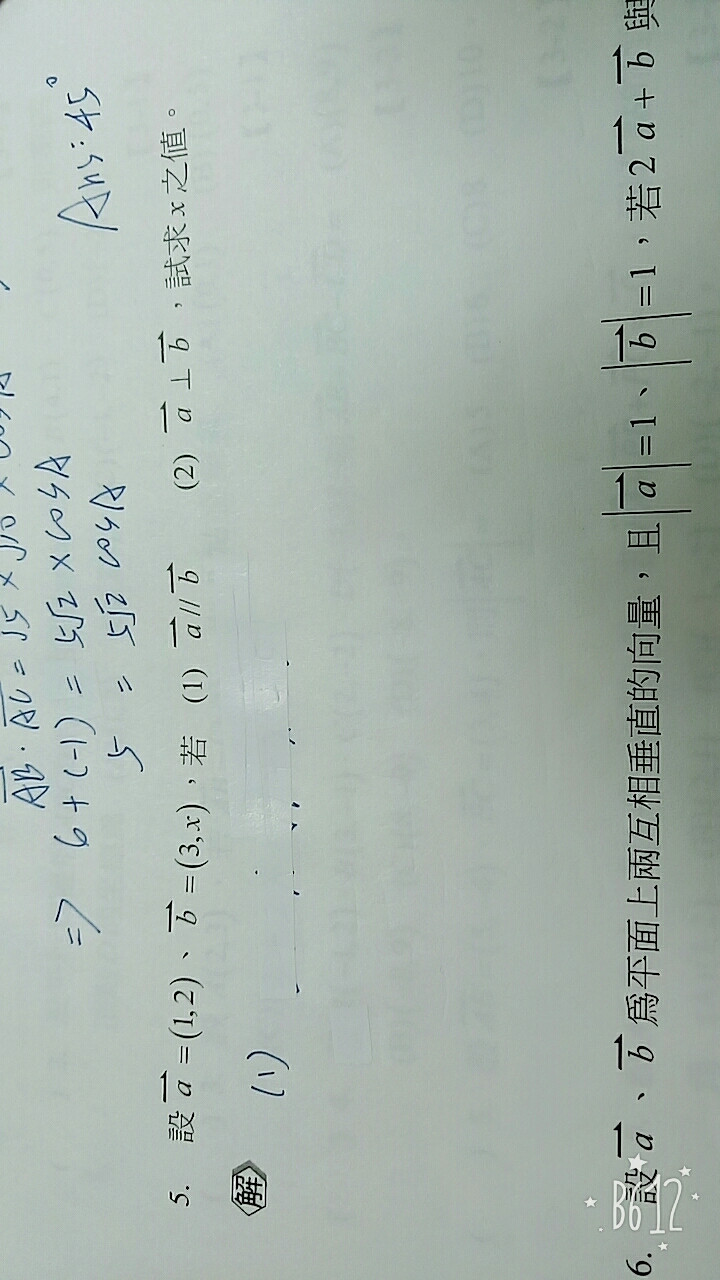 AB · AC = √5 × √10 × cosA
=> 6 + (-1) = 5√2 × cosA
5 = 5√2 cosA
Ans: 45°
5. 設 a =(1,2)、b =(3,x),若 (1) a // b (2) a ⊥ b ,試求 x 之值。
解 (1)
6. 設 a 、 b 為平面上兩互相垂直的向量,且 |a|=1、|b|=1,若 2a + b 與
B612